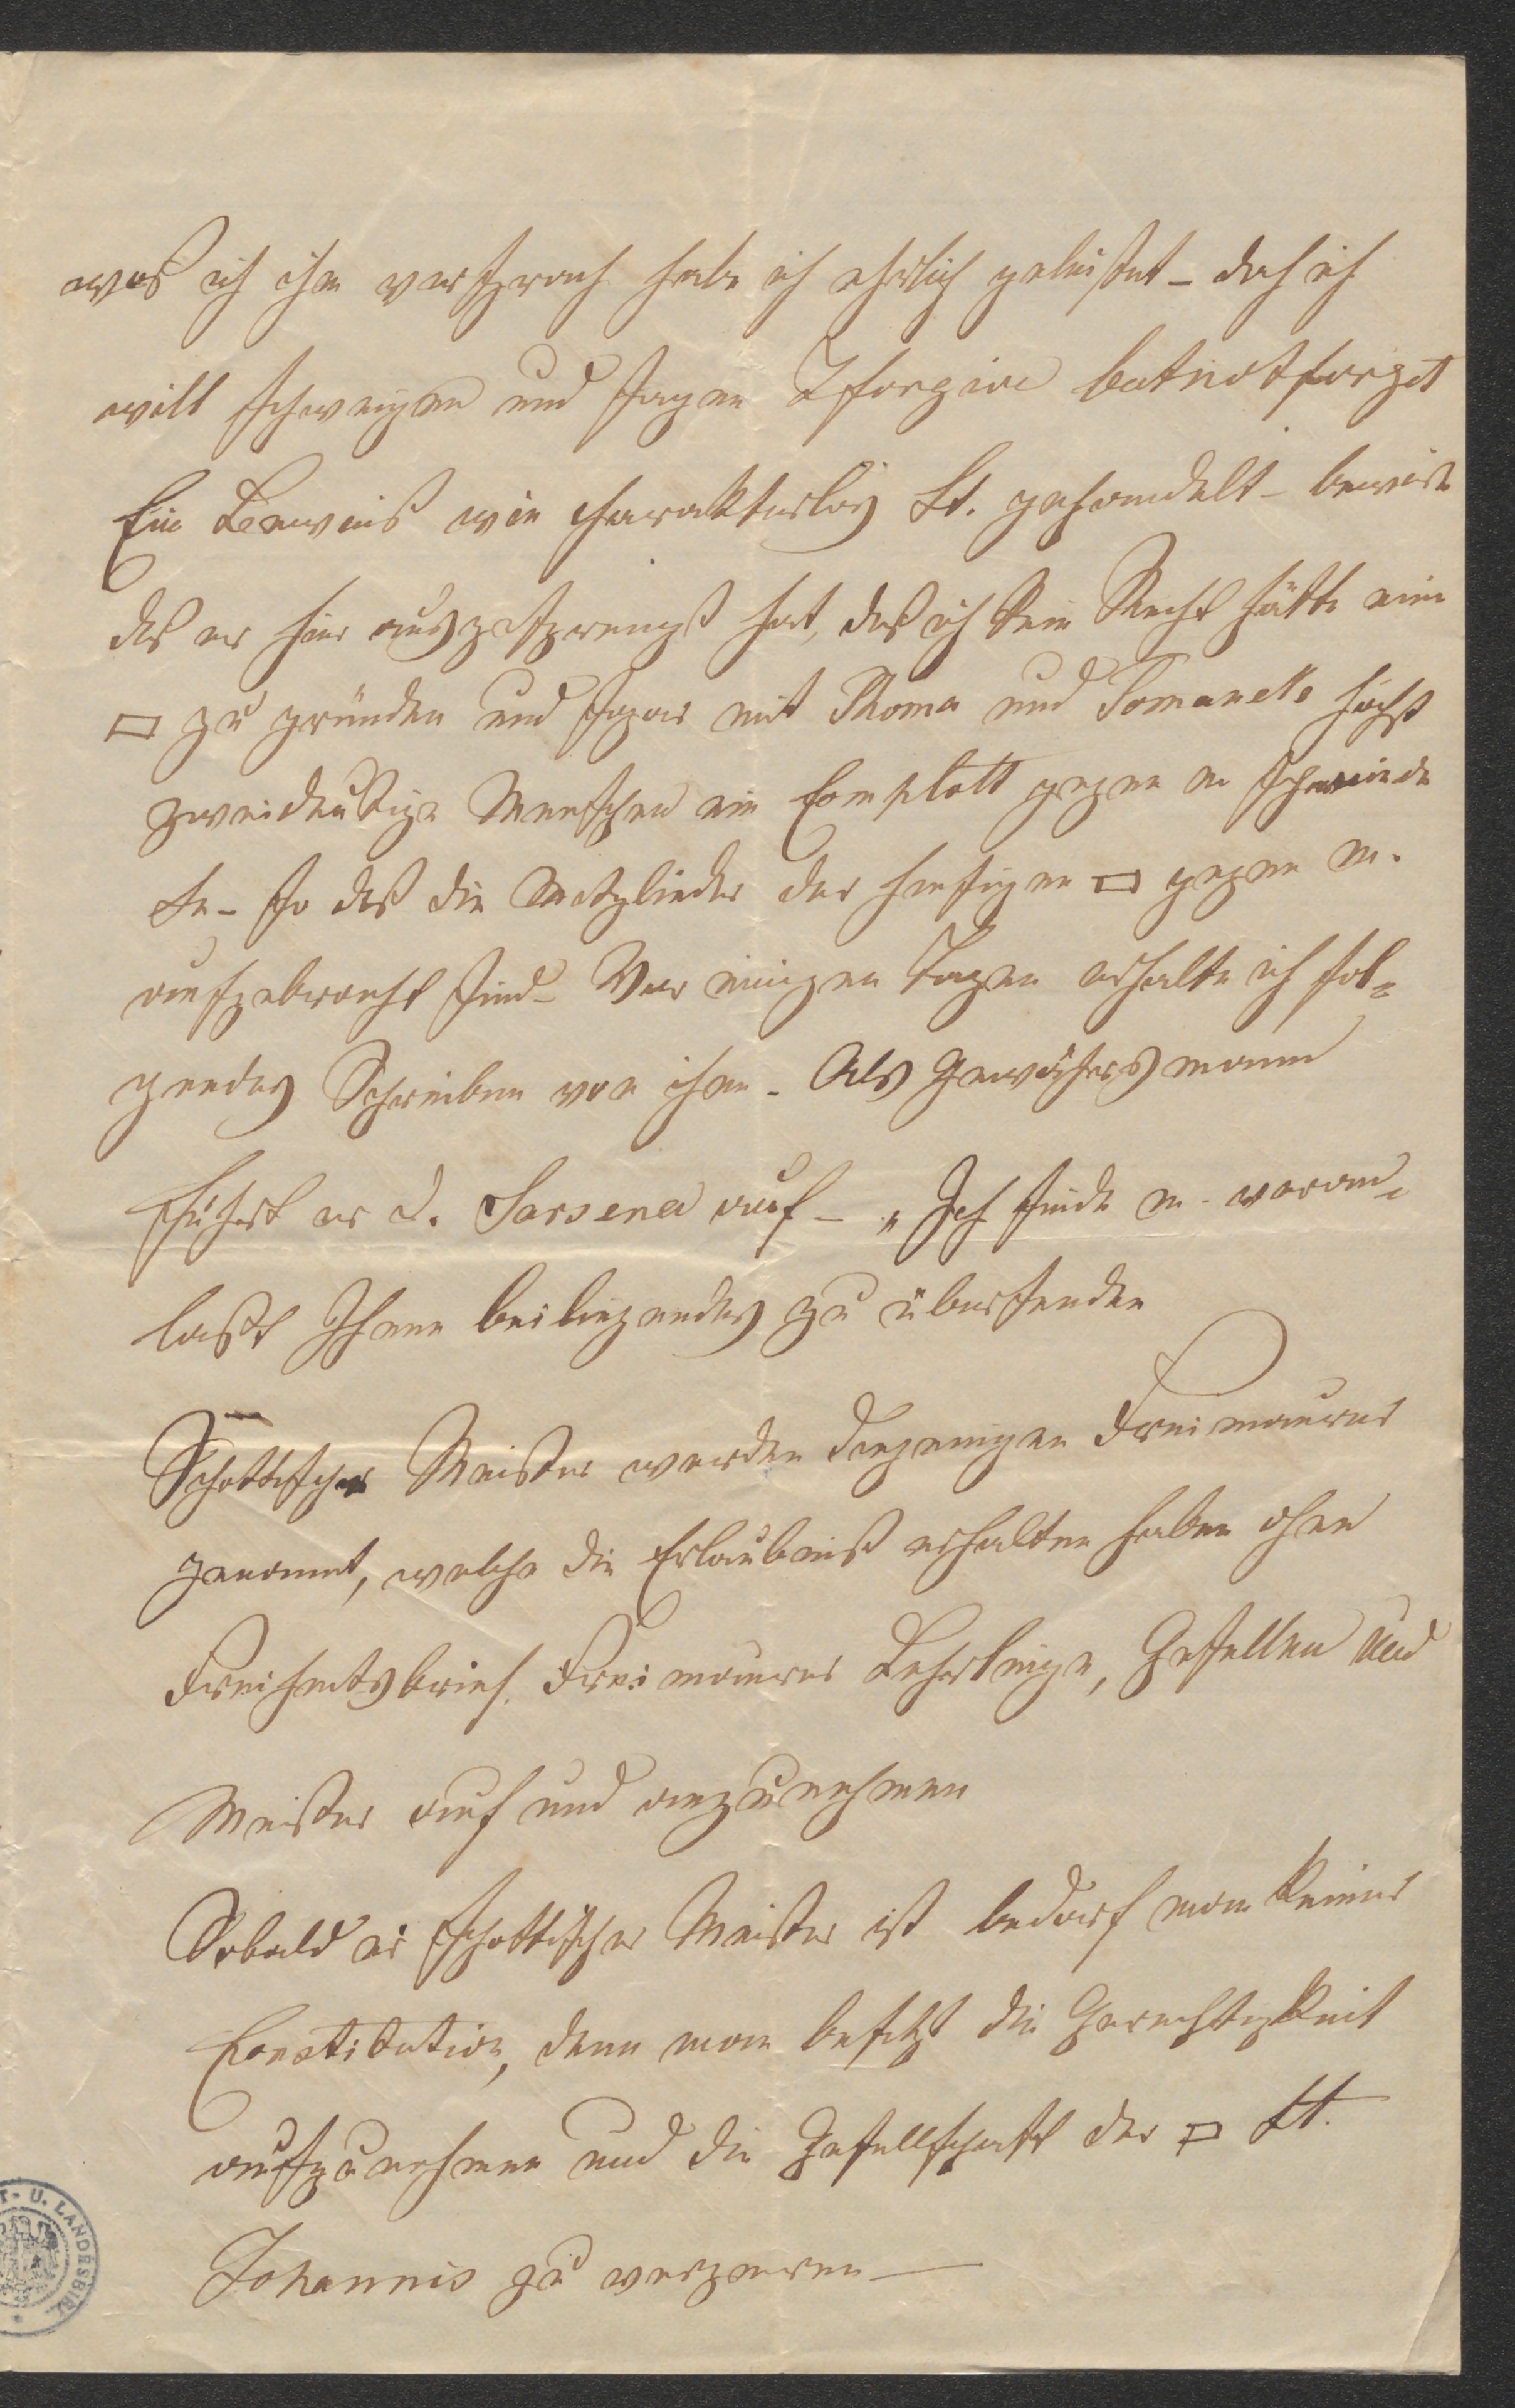 was ich ihm versprach habe ich ehrlich geleistet – doch ich
will schweigen und sagen I forgive but not forget
Ein Beweis wie charakterlos St. gehandelt – beweist
daß er hier ausgesprengt hat, daß ich kein Recht hätte eine
▭ zu gründen und sogar mit Thoma und Tomanek höchst
zweideutige Menschen ein Complott gegen m schmiede
te – so daß die Mitglieder der hiesigen ▭ gegen m.
aufgebracht sind – Vor einigen Tagen erhalte ich fol=
gendes Schreiben von ihm – Als Gewährsmann
führt er d. Sarsena auf – „Ich finde m. veran=
laßt Ihnen beiliegendes zu übersenden
Schottischer Meister werden diejenigen Freimaurer
genannt, welche die Erlaubniß erhalten haben ohne
Freiheitsbrief Freimaurer Lehrlinge, Gesellen und
Meister auf und anzunehmen
Sobald er schottischer Meister ist bedarf man keiner
Constitution, denn man besitzt die Gerechtigkeit
aufzunehmen und die Gesellschaft der ▭ St.
Johannis zu
T- U. LANDESBIBL